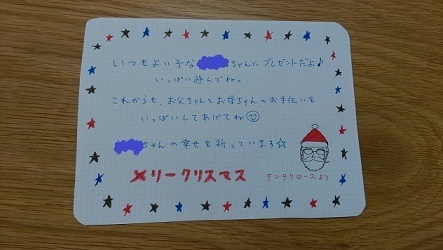 いつもよい子な ちゃんにプレゼントだよ♪
いっぱい遊んでね。
これからも、お父ちゃんとお母ちゃんのお手伝いを
いっぱいしてあげてね☺
ちゃんの幸せを祈っています☆
メリークリスマス
サンタクロースより